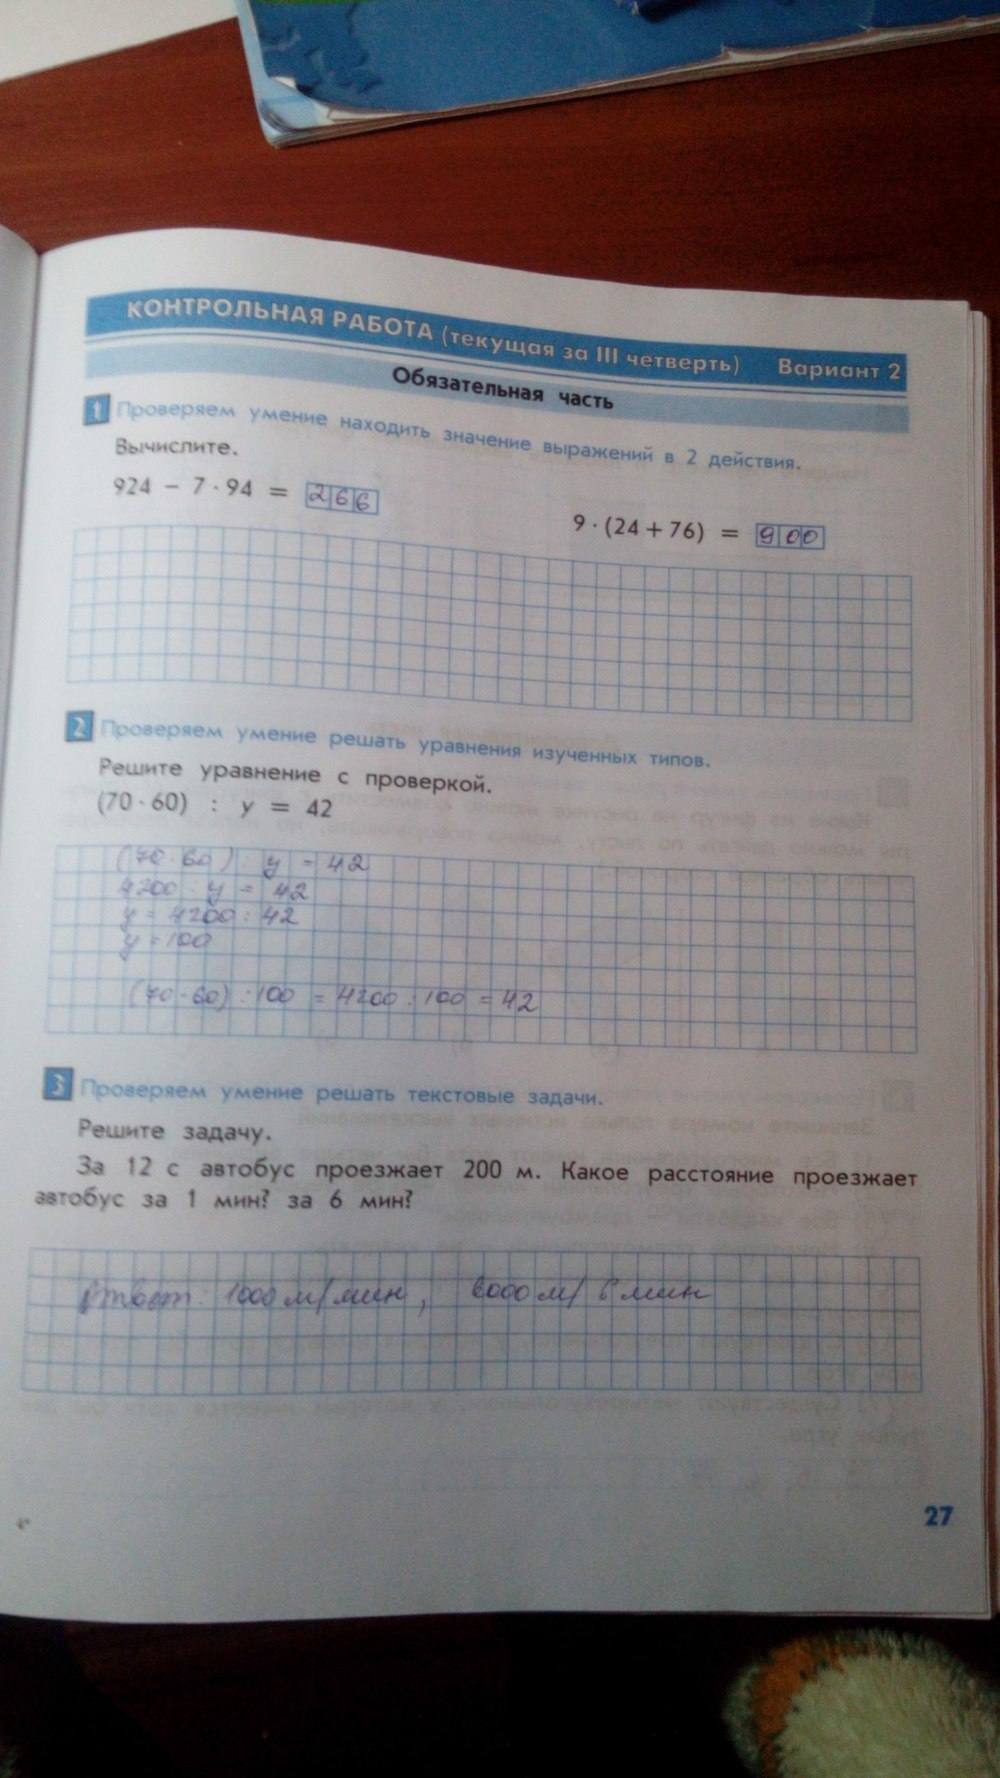 КОНТРОЛЬНАЯ РАБОТА (текущая за III четверть) Вариант 2
Обязательная часть
1 Проверяем умение находить значение выражений в 2 действия.
Вычислите.
924 - 7 · 94 = 266
9 · (24 + 76) = 900
2 Проверяем умение решать уравнения изученных типов.
Решите уравнение с проверкой.
(70 · 60) : y = 42
(70·60) : y = 42
4200 : y = 42
y = 4200 : 42
y = 100
(70·60) : 100 = 4200 : 100 = 42
3 Проверяем умение решать текстовые задачи.
Решите задачу.
За 12 с автобус проезжает 200 м. Какое расстояние проезжает
автобус за 1 мин? за 6 мин?
Ответ: 1000 м/мин, 6000 м/ 6 мин
27